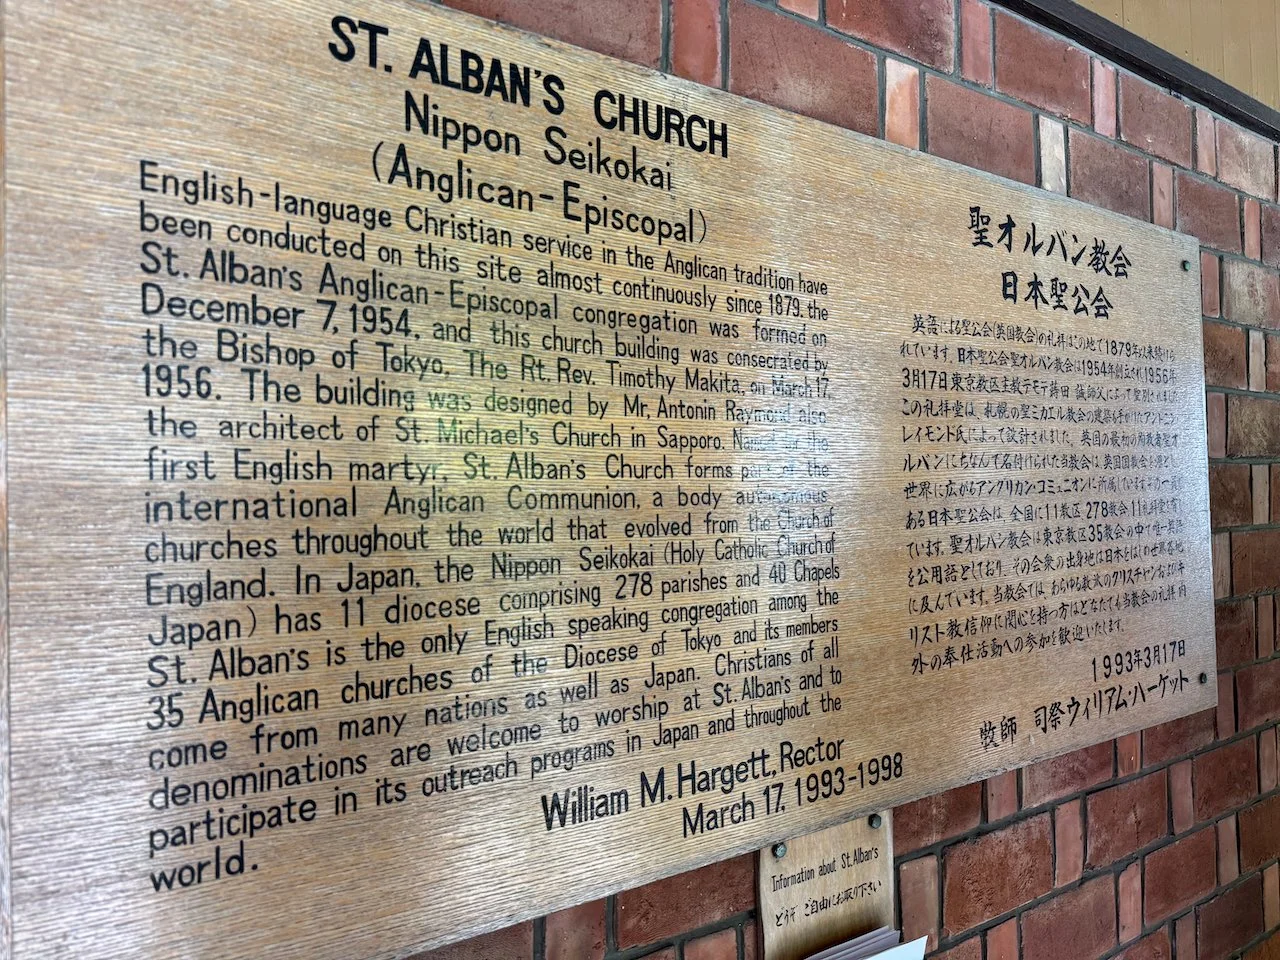 ST. ALBAN'S CHURCH
Nippon Seikokai
(Anglican-Episcopal)
English-language Christian service in the Anglican tradition have
been conducted on this site almost continuously since 1879. the
St. Alban's Anglican-Episcopal congregation was formed on
December 7, 1954. and this church building was consecrated by
the Bishop of Tokyo, The Rt. Rev. Timothy Makita, on March 17,
1956. The building was designed by Mr, Antonin Raymond also
the architect of St. Michael's Church in Sapporo. Named for the
first English martyr, St. Alban's Church forms part of the
international Anglican Communion, a body autonomous
churches throughout the world that evolved from the Church of
England. In Japan, the Nippon Seikokai (Holy Catholic Church of
Japan) has 11 diocese comprising 278 parishes and 40 Chapels
St. Alban's is the only English speaking congregation among the
35 Anglican churches of the Diocese of Tokyo and its members
come from many nations as well as Japan. Christians of all
denominations are welcome to worship at St. Alban's and to
participate in its outreach programs in Japan and throughout the
world.
William M. Hargett, Rector
March 17, 1993-1998
聖オルバン教会
日本聖公会
英語による聖公会(英国教会)の礼拝はこの地で1879年以来続けら
れています。日本聖公会聖オルバン教会は1954年創立され1956年
3月17日東京教区主教テモテ蒔田 誠師父によって聖別されました
この礼拝堂は、札幌の聖ミカエル教会の建築も手がけたアントニン
レイモンド氏によって設計されました。英国の最初の殉教者聖オ
ルバンにちなんで名付けられた当教会は、英国国教会を源とし
世界に広がるアングリカン・コミュニオンに所属しています
ある日本聖公会は、全国に11教区 278教会 11礼拝堂
ています。聖オルバン教会は東京教区35教会の中で唯一英語
を公用語としており、その会衆の出身地は日本をはじめ世界各地
に及んでいます。当教会では、あらゆる教派のクリスチャンおよびキ
リスト教信仰に関心を持つ方はどなたでも当教会の礼拝 内
外の奉仕活動への参加を歓迎いたします。
1993年3月17日
牧師 司祭ウィリアム・ハーゲット
Information about St. Alban's
どうぞ ご自由にお取り下さい